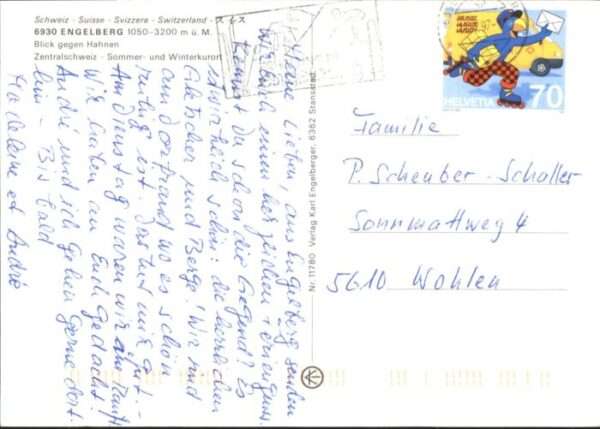 Schweiz · Suisse · Svizzera · Switzerland · スイス
6390 ENGELBERG 1050-3200 m ü. M.
Blick gegen Hahnen
Zentralschweiz · Sommer- und Winterkurort
Meine Lieben, aus Engelberg senden
wir Euch einen herzlichen Feriengruss.
Kennst du schon die Gegend? Es
ist wirklich schön: die herrlichen
Gletscher und Berge! Wir sind
am Dorfrand wo es schön
ruhig ist. Das tut mir gut. -
Am Dienstag waren wir am
Wir haben an Euch gedacht!
André und ich gehen gerne dort
hin - Bis bald
Madeleine et André
Nr. 11780 Verlag Karl Engelberger, 6362 Stansstad
HELVETIA 70
Familie
P. Scheuber-Schaller
Sonnmattweg 4
5610 Wohlen